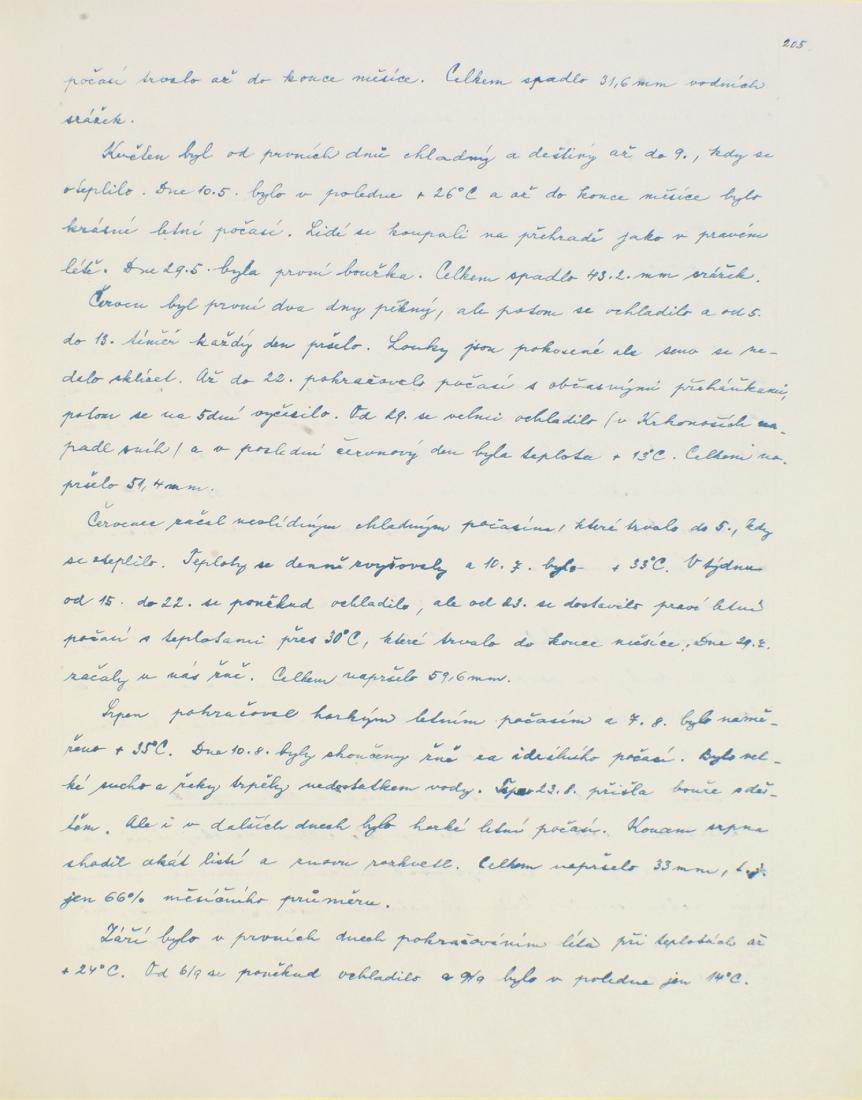 205
počasí trvalo až do konce měsíce. Celkem spadlo 31,6 mm vodních
srážek.
Květen byl od prvních dnů chladný a deštivý až do 9., kdy se
oteplilo. Dne 10.5. bylo v poledne + 26°C a až do konce měsíce bylo
krásné letní počasí. Lidé se koupali na přehradě jako v pravém
létě. Dne 29.5. byla první bouřka. Celkem spadlo 43.2. mm srážek.
Červen byl první dva dny pěkný, ale potom se ochladilo a od 5.
do 13. téměř každý den pršelo. Louky jsou pokosené ale seno se ne-
dalo sklízet. Až do 22. pokračovalo počasí s občasnými přeháňkami,
potom se na 5 dní vyčasilo. Od 29. se velmi ochladilo (v Krkonoších na-
padl sníh) a v poslední červnový den byla teplota + 13°C. Celkem na-
pršelo 51,4 mm.
Červenec začal nevlídným chladným počasím, které trvalo do 5., kdy
se oteplilo. Teploty se denně zvyšovaly a 10.7. bylo + 33°C. V týdnu
od 15. do 22. se poněkud ochladilo, ale od 23. se dostavilo pravé letní
počasí s teplotami přes 30°C, které trvalo do konce měsíce. Dne 29.7.
začaly u nás žně. Celkem napršelo 59,6 mm.
Srpen pokračoval horkým letním počasím a 7.8. bylo namě-
řeno + 35°C. Dne 10.8. byly skončeny žně za ideálního počasí. Bylo vel-
ké sucho a řeky trpěly nedostatkem vody. 23.8. přišla bouře s deš-
těm. Ale i v dalších dnech bylo horké letní počasí. Koncem srpna
shodil akát listí a znovu rozkvetl. Celkem napršelo 33 mm, t.j.
jen 66% měsíčního průměru.
Září bylo v prvních dnech pokračováním léta při teplotách až
+ 24°C. Od 6/9 se poněkud ochladilo a 9/9 bylo v poledne jen 14°C.